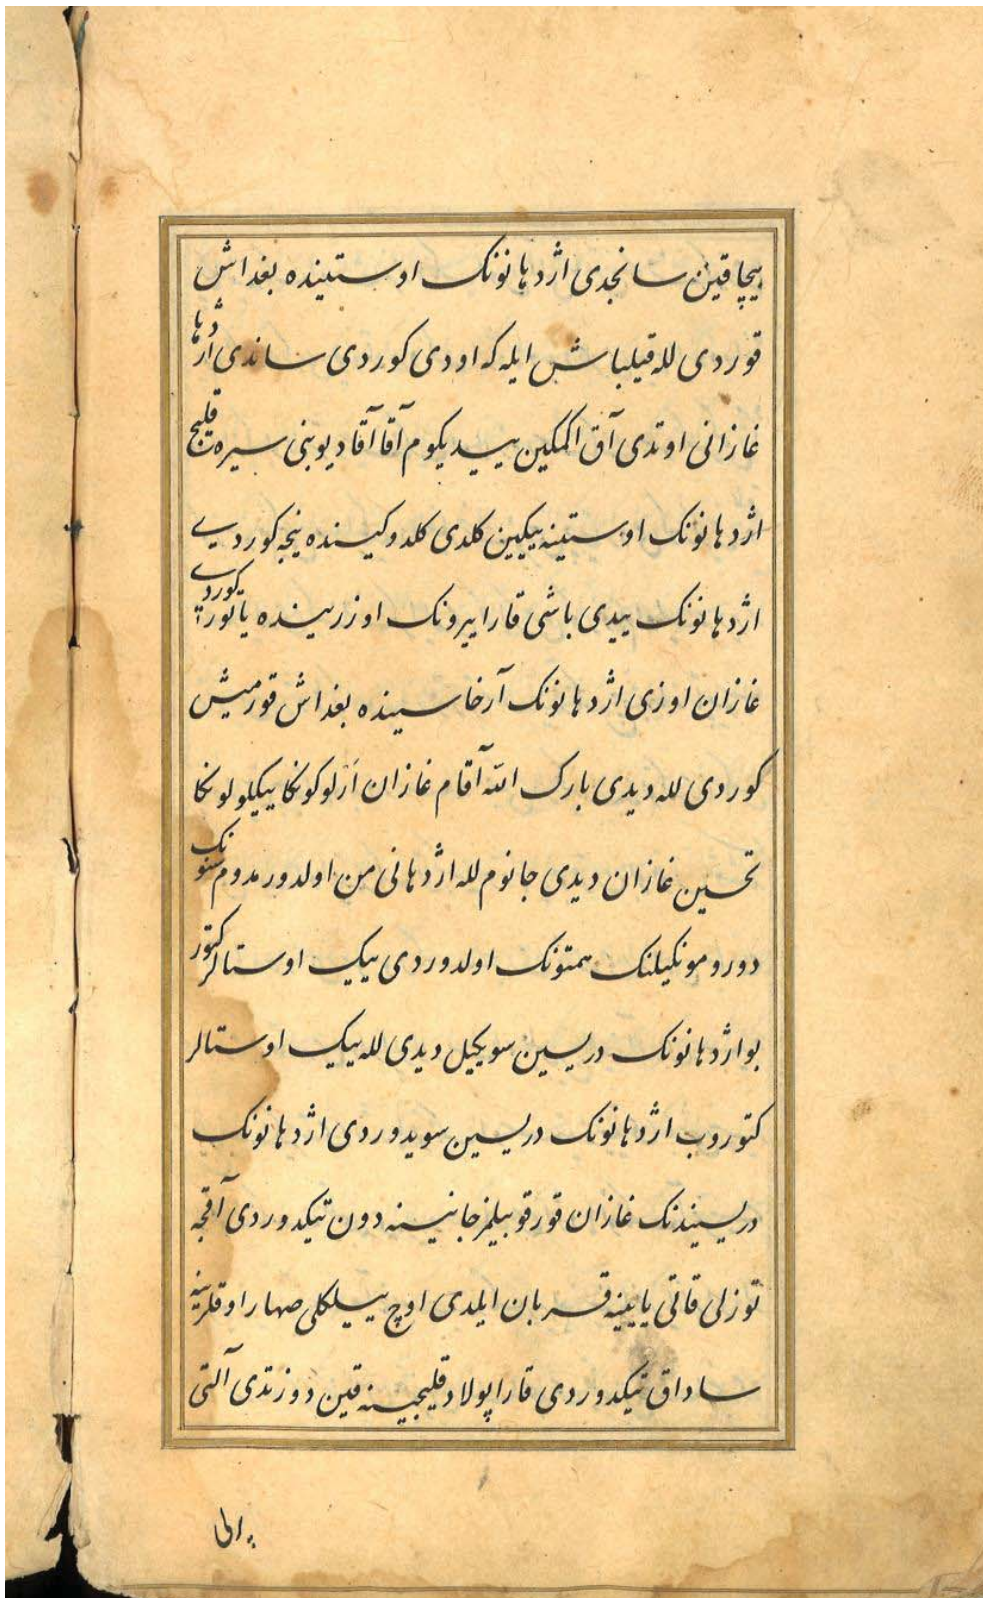 بیچاقین سانجدی اژدهانونک اوستینده بغداش
قوردی لله قیلباش ایله که اودی کوردی ساندی اژدها
غازانی اوتدی آق اکمکین ییدیکوم آقا آقا دیو بنی سیره قلیج
اژدهانونک اوستینه ییکین کلدی کلدوکینده ینجه کوردی
اژدهانونک ییدی باشی قارا ییرونک اوزرینده یاتور کوردی
غازان اوزی اژدهانونک آرخاسینده بغداش قورمیش
کوردی لله دیدی بارک الله آقام غازان ارلوکونکا ییکلولونکا
تحسین غازان دیدی جانوم لله اژدهانی من اولدورمدوم سنونک
دورومونکیلنک همتونک اولدوردی ییک اوستالر کتور
بو اژدهانونک دریسین سویکیل دیدی لله ییک اوستالر
کتوروب اژدهانونک دریسین سویدوردی اژدهانونک
دریسیندنک غازان قورقو بیلمز جانینه دون تیکدوردی آقجه
توزلی قاتی یایینه قربان ایلدی اوچ ییلکلی صهار اوقلرینه
ساداق تیکدوردی قارا پولاد قلیجینه قین دوزتدی آلتی